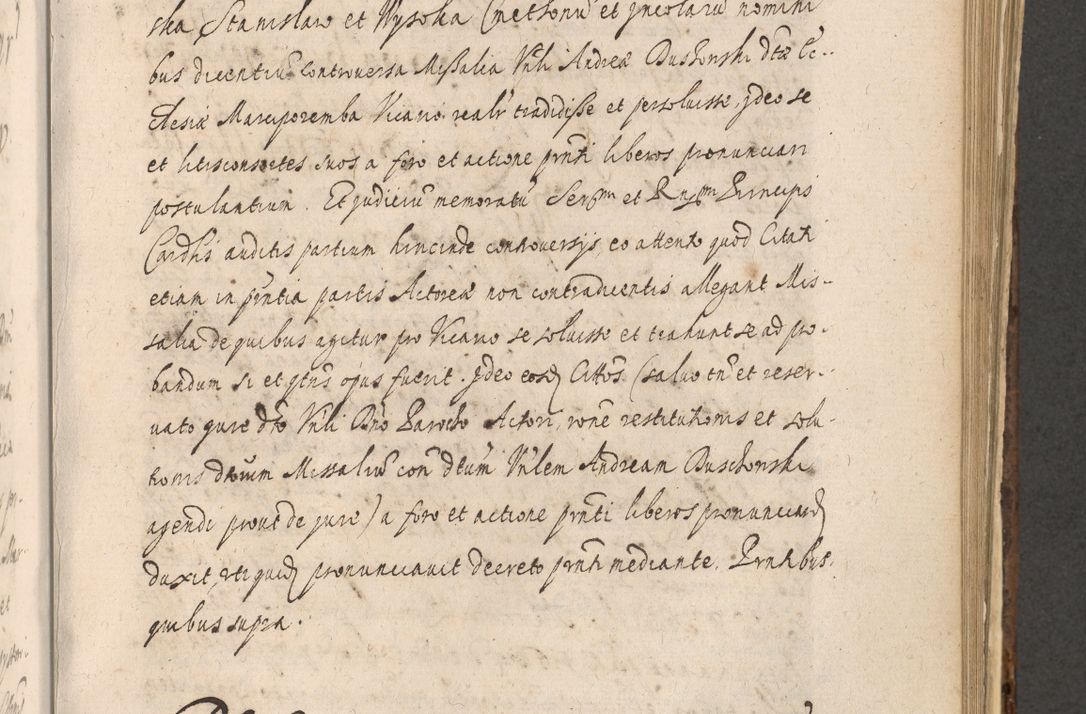 ska Stanislaw et Wysoka Cmethonũ et jncolarũ nomini
bus dicentiũ controversa Missalia Vnli Andreæ Buskonski dtæ Ec-
clesiæ Marciporemba Vicario realr tradidisse et persoluisse, jdeo se
et litisconsortes suos a foro et actione prnti liberos pronunciari
postulantium. Et judiciũ memoratũ Sermi et Rndmi Principis
Cardlis auditis partium hincinde controversijs, eo attento quod Citati
etiam in pntia partis Actoreæ non contradicentis allegant Mis-
salia de quibus agitur pro Vicario se soluisse et trahunt se ad pro-
bandum si et qtns opus fuerit. Jdeo eosd Cittos (salvo tn et reser-
vato jure dto Vnli Dno Parocho Actori, rone restitutionis et solu-
tionis dtorum Missaliũ con dtum Vnlem Andream Buschonski
agendi prout de jure) a foro et actione prnti liberos pronunciand
duxit, uti quid pronunciavit decreto prnti mediante. Prntibus
quibus supra.